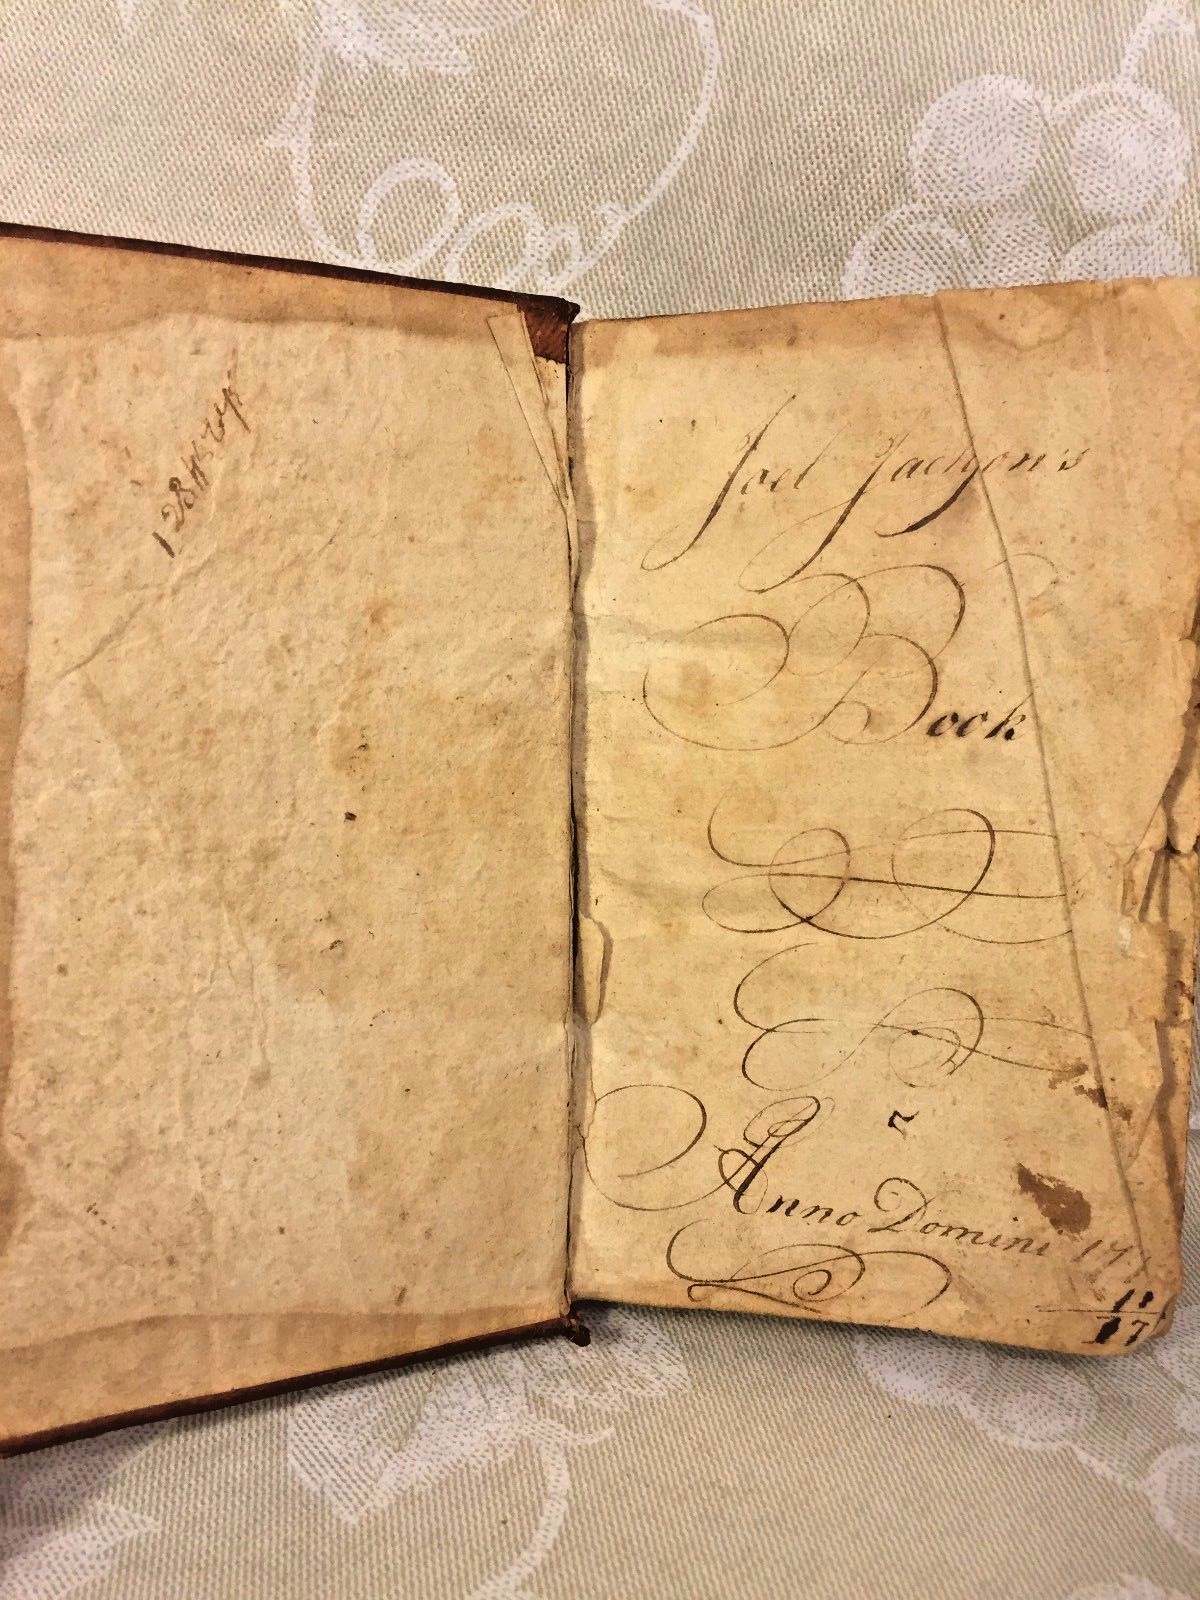 Joel Jackson's
Book
Anno Domini 17
11
17